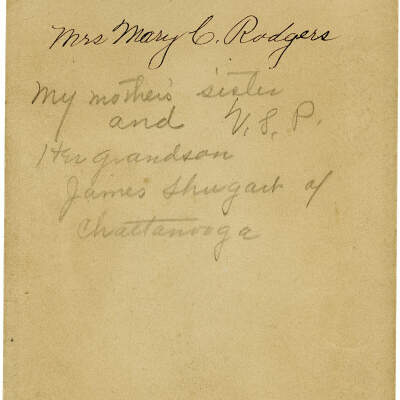 Mrs Mary C. Rodgers
My mother's sister
and V. S. P.
Her grandson
James Shugart of
Chattanooga